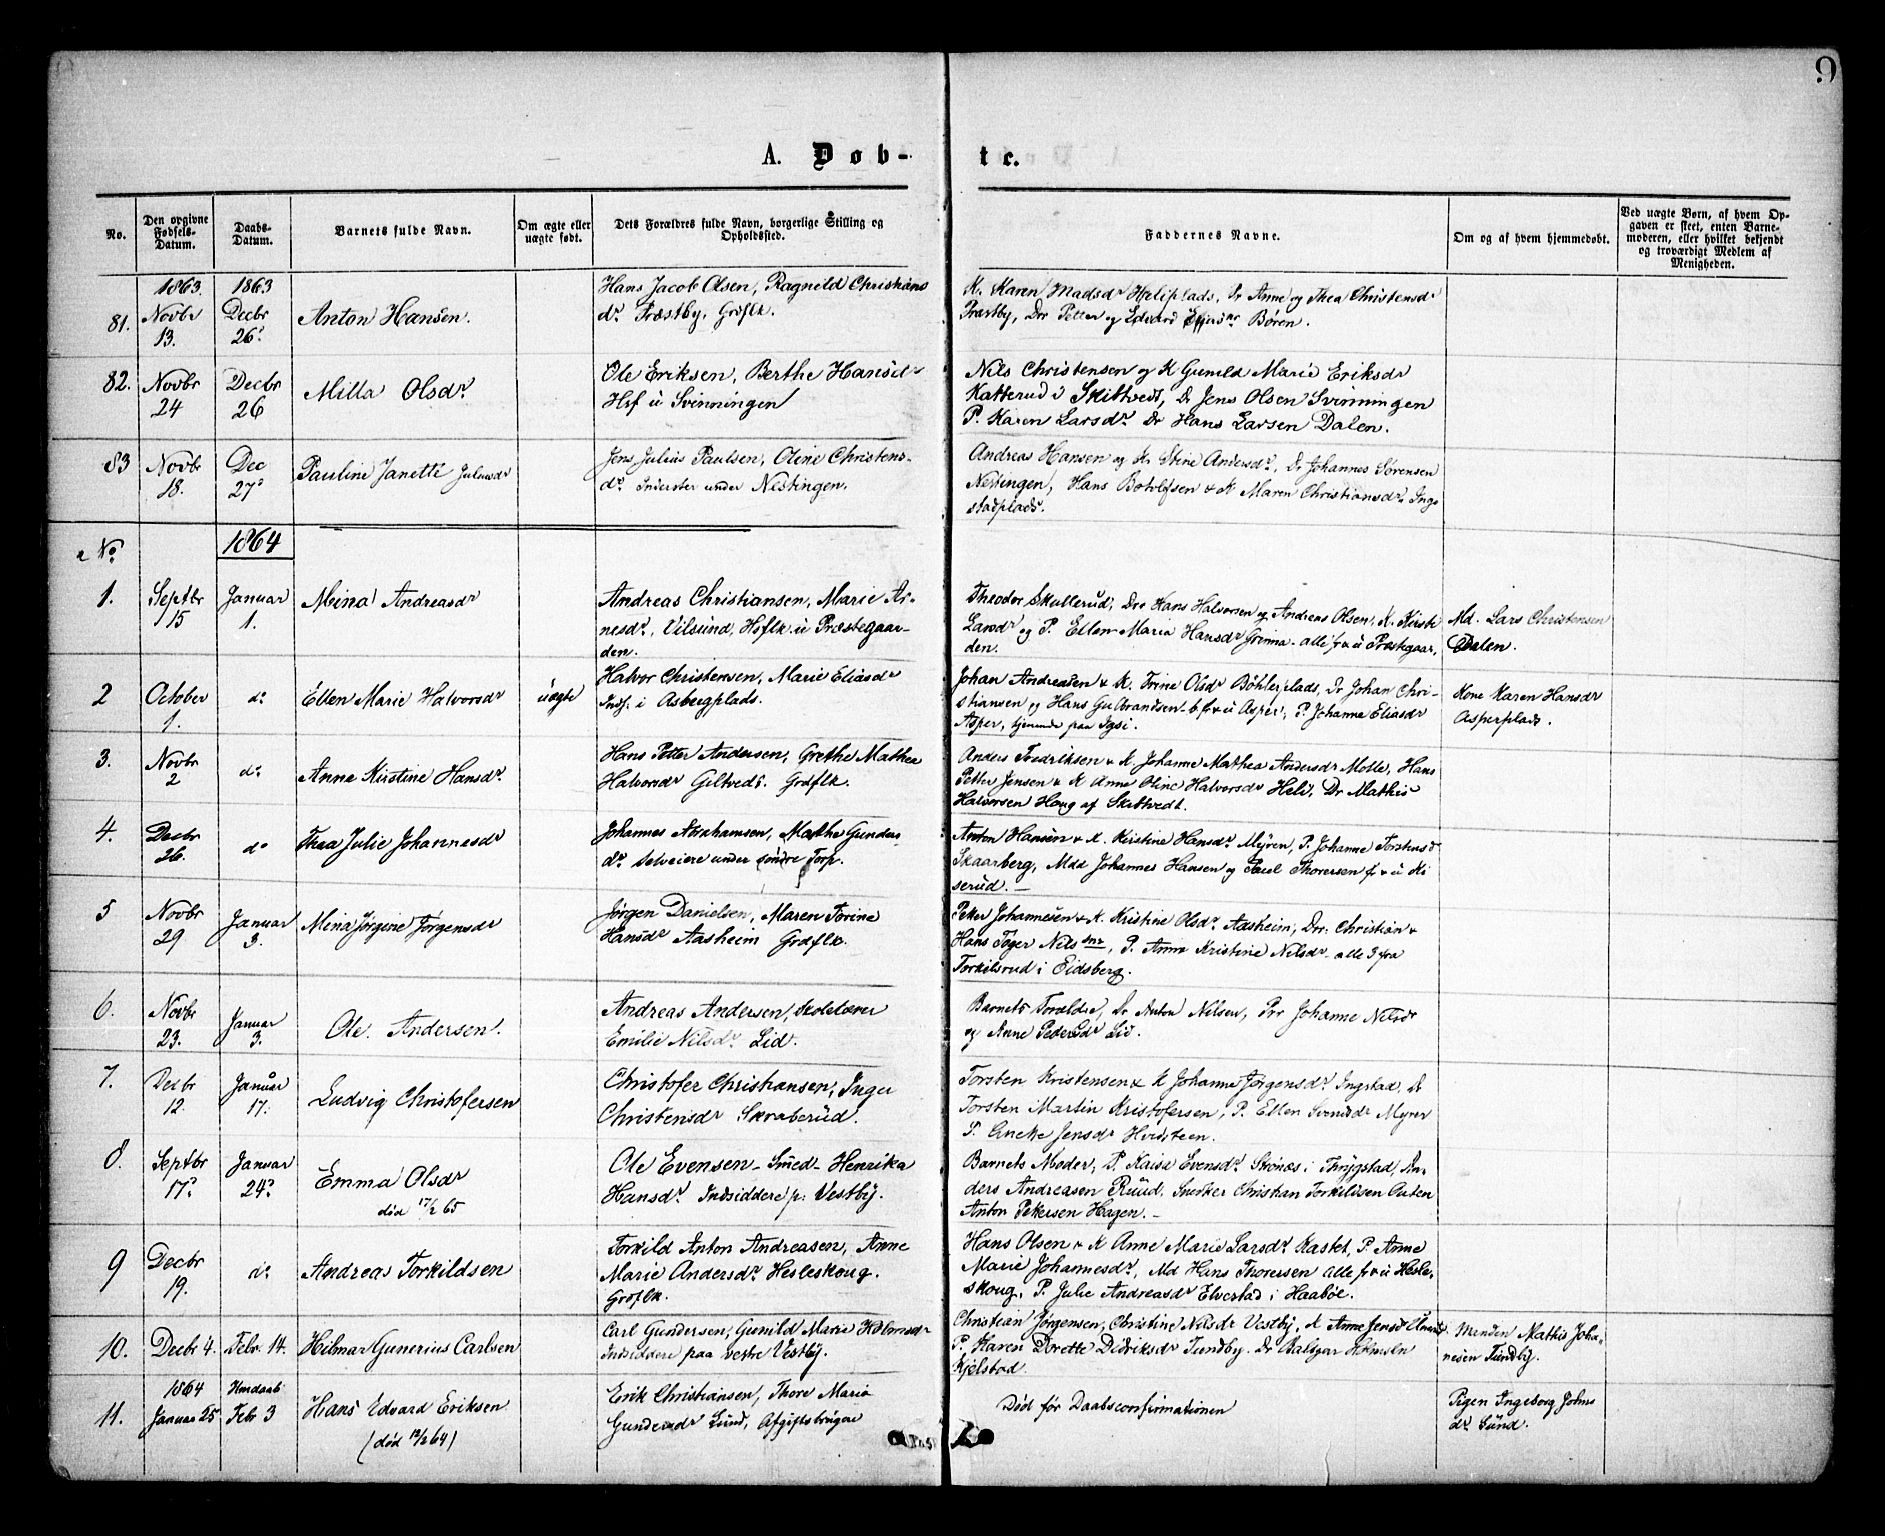 9
A. Døb- te.
No.
Den opgivne Fødsels-Datum.
Daabs-Datum.
Barnets fulde Navn.
Om ægte eller uægte født.
Dets Forældres fulde Navn, borgerlige Stilling og Opholdssted.
Faddernes Navne.
Om og af hvem hjemmedøbt.
Ved uægte Børn, af hvem Opgaven er skeet, enten Barnemoderen, eller hvilket bekjendt og troværdigt Medlem af Menigheden.
81.
1863.
Novbr
13.
1863
Decbr
26.
Anton Hansen.
Hans Jacob Olsen, Ragnild Christians
dr. Præstby, Grdflk.
K. Karen Madsdr Heliplads, Dr Anne og Thea Christensdr
Præstby, Drr Petter og Edvard Børen.
82.
Novbr
24
Decbr
26
Milla Olsdr
Ole Eriksen, Berthe Hansdr
Hsf u Svinningen
Nils Christensen og K Gunild Marie Eriksdr
Katterud i Skittvedt, Dr Jens Olsen Svinningen
P. Karen Larsdr. Dr Hans Larsen Dalen.
83
Novbr
18.
Dec
27
Pauline Janette Juliusdr
Jens Julius Paulsen, Oline Christens-
dr. Inderster under Nestingen.
Andreas Hansen og K. Stine Andersdr, Dr Johannes Sørensen
Nestingen, Hans Botolfsen & K Maren Christiansdr. Ing-
stadplads.
No
1864
1.
Septbr
15
Januar
1.
Mina Andreasdr
Andreas Christiansen, Marie Ar-
nesdr, Vilsund, Hsflk u Præstegaar-
den.
Theodor Skullerud, Drr Hans Halvorsen og Andreas Olsen, K. Kirsti
Larsdr og P. Ellen Maria Hansdr Grinna - alle fr u Præstegaar,
den.
Md. Lars Christensen
Dalen.
2
October
1.
do
Ellen Marie Halvorsdr
uægte
Halvor Christensen, Marie Eliasdr
Indf. i Asbergplads.
Johan Andreasen & K. Trine Olsdr Böhlerplads, Dr Johan Chri-
stiansen og Hans Gulbrandsen - b. fr u Asper, P. Johanne Eliasdr
Asper, tjenende paa Igsi.
Kone Karen Hansdr
Asperplads.
3.
Novbr
2
do
Anne Kirstine Hansdr.
Hans Petter Andersen, Grethe Mathea
Halvorsdr Giltvedt. Grdflk.
Anders Fredriksen & K Johanne Mathea Andersdr Molle, Hans
Petter Jensen & K Anne Oline Halvorsdr Heli, Dr Mathis
Halvorsen Haug af Skittvedt.
4.
Decbr
26.
do
Thea Julie Johannesdr
Johannes Abrahamsen, Marthe Gunders
dr. Selveiere under søndre Torp.
Anton Hansen & K. Kirstine Hansdr. Myren, P. Johanne Torstensd
Skaarberg, Mdd Johannes Hansen og Paul Thoresen fr u Ki
serud.
5
Novbr
29
Januar
3.
Mina Jørgine Jørgensdr
Jørgen Danielsen, Maren Torine
Hansdr Aasheim Grdflk.
Peter Johannesen & K. Kristine Olsdr. Aasheim, Drr. Christian &
Hans Toger Nils snr, P. Anne Kristine Nilsdr - alle 3 fra
Torkilsrud i Eidsberg.
6.
Novbr
23.
Januar
3.
Ole. Andersen.
Andreas Andersen, Skolelærer
Emilie Nilsdr. Lid.
Barnets Forældre, Dr Anton Nilsen, Prr Johanne Nilsdr
og Anne Pedersdr Lid.
7.
Decbr
12.
Januar
17.
Ludvig Christofersen
Christofer Christiansen, Inger
Christensdr Skraberud.
Torsten Kristensen & K Johanne Jørgensdr. Ingstad, Dr
Torsten Martin Kristofersen, P. Ellen Svendsdr Myrer
P. Aneke Jensdr Hvidsteen.
8.
Septbr
17
Januar
24
Emma Olsdr
død 17/2 65
Ole Evensen - Smed - Henrika
Hansdr. Indsiddere p. Vestby.
Barnets Moder, P. Kaisa Evensdr. Stønæs i Thrygstad, An-
ders Andreasen Ruud. Snedker Christian Torkildsen Outen
Anton Pettersen Hagen.
9
Decbr
19.
do
Andreas Torkildsen
Torkild Anton Andreasen, Anne
Marie Andersdr. Hesleskoug.
Grdflk.
Hans Olsen & K Anne Marie Larsdr. Kastet, P. Anne
Marie Johannesdr, Md Hans Thoresen alle fr u Hesle-
skoug, P. Julie Andreasdr Elvestad i Haabøe.
10.
Decbr 4.
Febr. 14.
Hilmar Gunerius Carlsen
Carl Gundersen, Gunild Marie Holmsdr
Indsiddere paa vestre Vestby.
Christian Jørgensen, Christine Nilsdr Vestby, K Anne Jensdr
P. Karen Dorette Didriksdr Tundby. Dr Baltzar Holmsen
Kjelstad.
Manden Mathis Joha-
nesen Tundby.
11.
1864
Januar 25
Hmdaab
Febr 3
Hans Edvard Eriksen
(død 12/2 64)
Erik Christiansen, Thore Maria
Gundersdr Lund, Afgiftsbruger
Død før Daabsconfirmationen
Pigen Ingeborg Johns
dr. Lund.